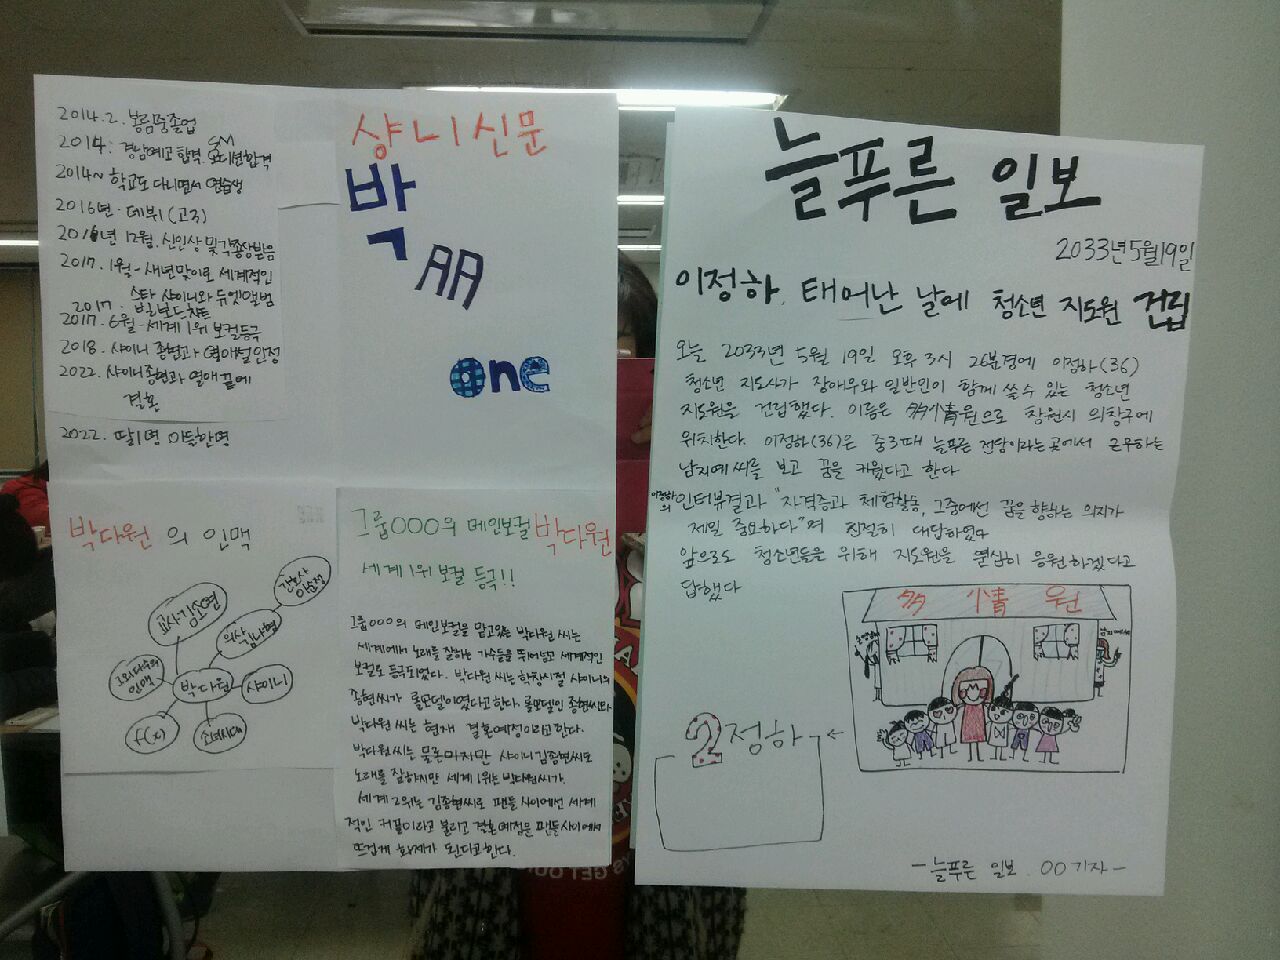 2014.2. 봉림중졸업
2014. 경남예고 합격. SM 오디션합격
2014~ 학교도 다니면서 연습생
2016년. 데뷔 (고3)
2016년 12월. 신인상 및 각종상받음
2017. 1월 - 새년맞이로 세계적인
스타 샤이니와 듀엣앨범
2017. 빌보드차트
2017. 6월 - 세계 1위 보컬등극
2018. 샤이니 종현과 연애설 인정
2022. 샤이니종현과 열애 끝에
결혼
2022. 딸1명 아들한명
샹니신문
박
AA
one
박다원 의 인맥
교사김소염
의사김나형
간호사
1외다수의
인맥
박다원
샤이니
f(x)
소녀시대
그룹OOO의 메인보컬 박다원
세계 1위 보컬 등극!!
그룹OOO의 메인보컬을 맡고있는 박다원 씨는
세계에서 노래를 잘하는 가수들을 뛰어넘고 세계적인
보컬로 등극되었다. 박다원 씨는 학창시절 샤이니의
종현씨가 롤모델이였다고한다. 롤모델인 종현씨와
박다원 씨는 현재 결혼예정이라고한다.
박다원씨는 물론마지만 샤이니 김종현씨도
노래를 잘하지만 세계 1위는 박다원씨가
세계 2위는 김종현씨로 팬들 사이에선 세계
적인 커플이라고 불리고 결혼예정은 팬들사이에서
뜨겁게 화제가 된다고한다.
늘푸른 일보
2033년 5월 19일
이정하, 태어난 날에 청소년 지도원 건립
오늘 2033년 5월 19일 오후 3시 26분경에 이정하(36)
청소년 지도사가 장애우와 일반인이 함께 쓸 수 있는 청소년
지도원을 건립했다. 이름은 多情원으로 창원시 의창구에
위치한다. 이정하(36)은 중3때 늘푸른 전담이라는곳에서 근무하는
남지예씨를 보고 꿈을 키웠다고 한다
이정하의 인터뷰결과 "자격증과 체험활동, 그중에선 꿈을 향하는 의지가
제일 중요하다"며 친절히 대답하였다
앞으로도 청소년들을 위해 지도원을 열심히 응원하겠다고
답했다
多 情 원
2정하
- 늘푸른 일보. OO기자 -